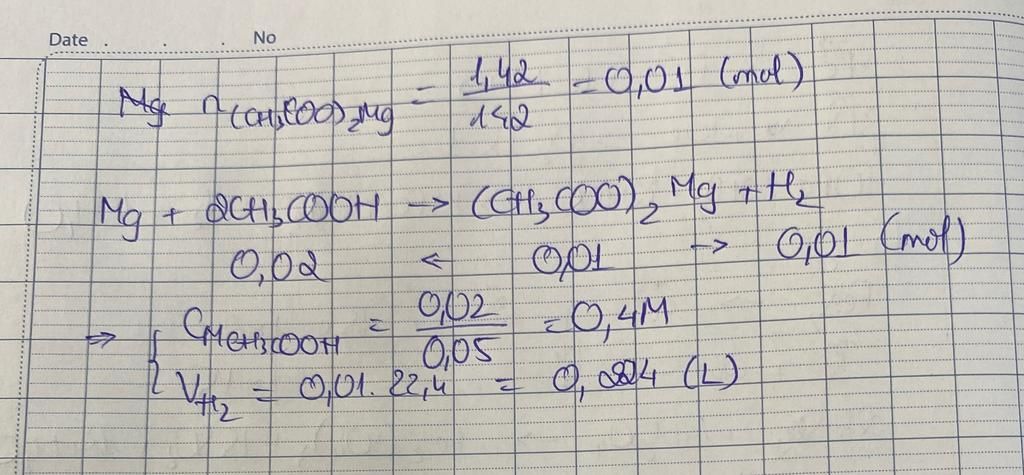 Date . . . No
Mg n(CH₃COO)₂Mg = 1,42/142 = 0,01 (mol)
Mg + 2CH₃COOH → (CH₃COO)₂Mg + H₂
0,02 ← 0,01 → 0,01 (mol)
⇒ { CMCH₃COOH = 0,02/0,05 = 0,4M
VH₂ = 0,01. 22,4 = 0,224 (L)